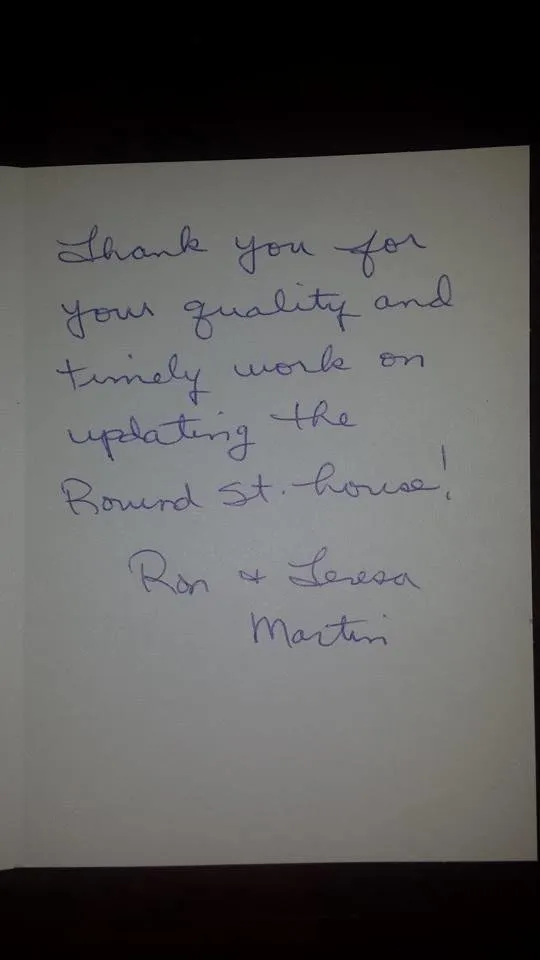 Thank you for
your quality and
timely work on
updating the
Round St. house!
Ron & Teresa
Martin